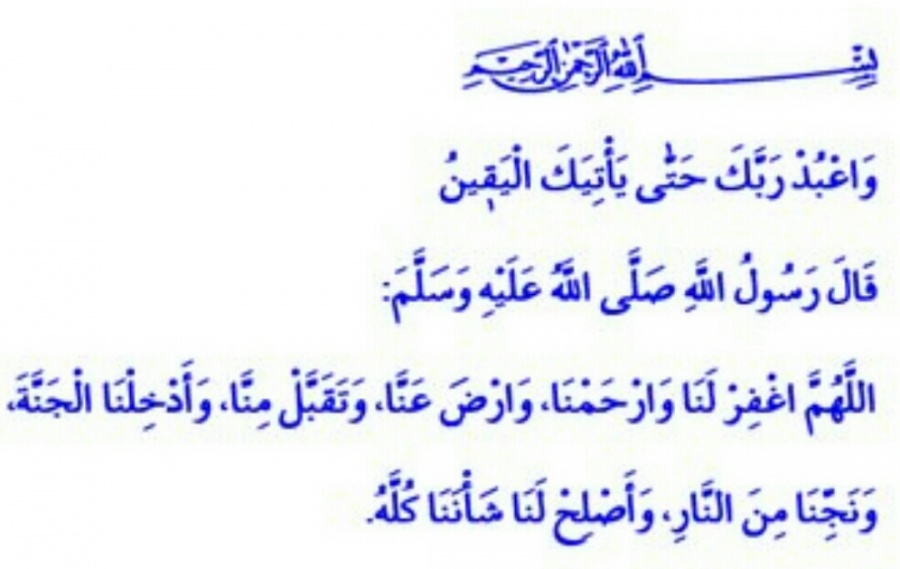 بِسْمِ اللهِ الرَّحْمٰنِ الرَّحِيمِ
وَاعْبُدْ رَبَّكَ حَتّٰى يَأْتِيَكَ الْيَقٖينُ
قَالَ رَسُولُ اللَّهِ صَلَّى اللَّهُ عَلَيْهِ وَسَلَّمَ:
اللَّهُمَّ اغْفِرْ لَنَا وَارْحَمْنَا، وَارْضَ عَنَّا، وَتَقَبَّلْ مِنَّا، وَأَدْخِلْنَا الْجَنَّةَ،
وَنَجِّنَا مِنَ النَّارِ، وَأَصْلِحْ لَنَا شَأْنَنَا كُلَّهُ.